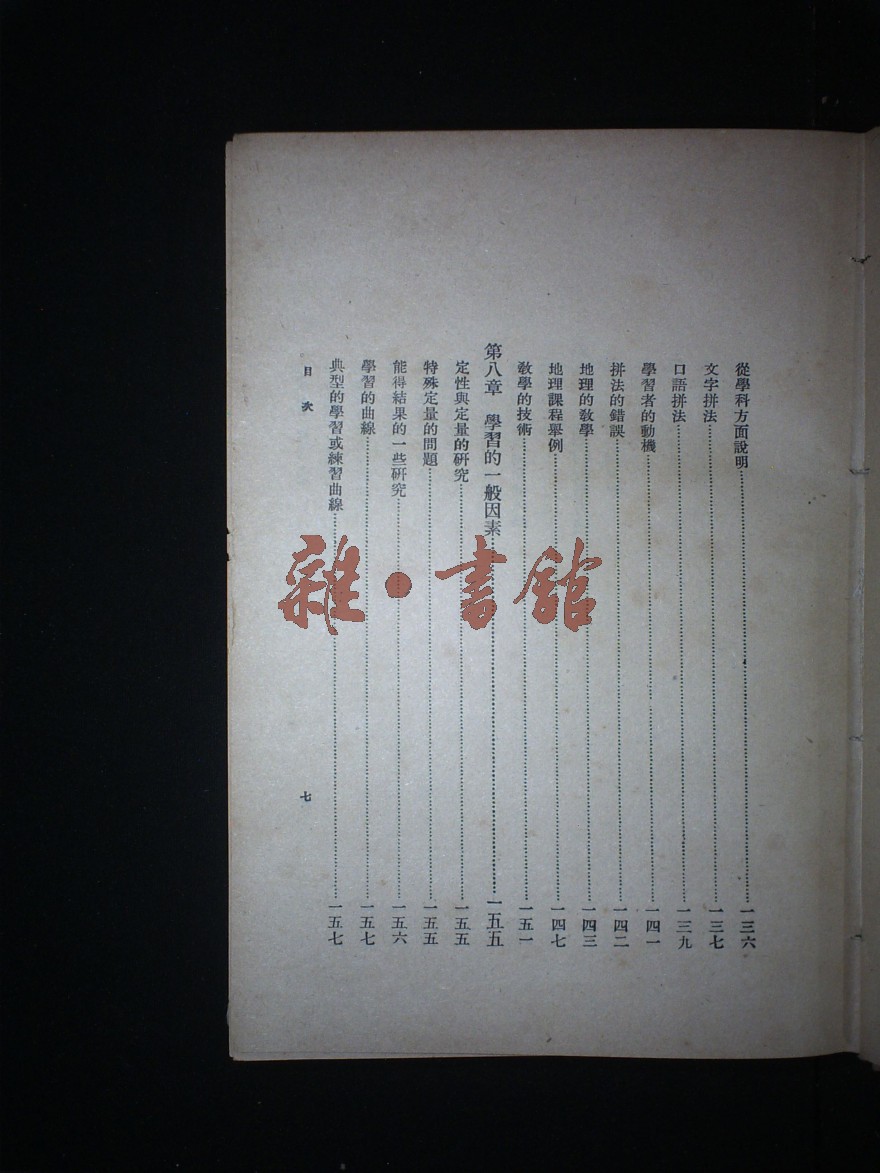 從學科方面說明…………一三六
文字拼法…………一三七
口語拼法…………一三九
學習者的動機…………一四一
拼法的錯誤…………一四二
地理的敎學…………一四三
地理課程舉例…………一四七
敎學的技術…………一五一
第八章　學習的一般因素…………一五五
定性與定量的研究…………一五五
特殊定量的問題…………一五五
能得結果的一些研究…………一五六
學習的曲線…………一五七
典型的學習或練習曲線…………一五七
目次
七
雜·書館